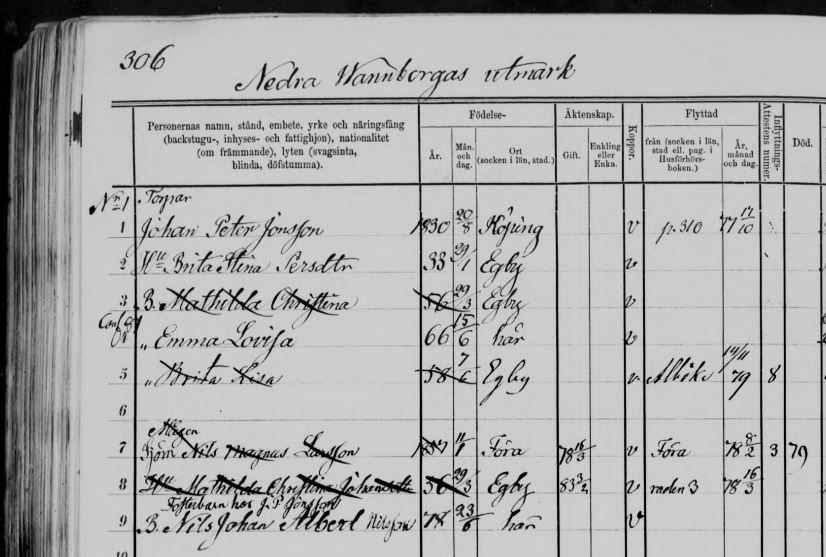 306
Nedra Wannborgas utmark
Personernas namn, stånd, embete, yrke och näringsfång (backstugu-, inhyses- och fattighjon), nationalitet (om främmande), lyten (svagsinta, blinda, döfstumma). Födelse- År. Mån. och dag. Ort (socken i län, stad.) Äktenskap. Gift. Enkling eller Enka. Koppor. Flyttad från (socken i län, stad ell. pag. i Husförhörsboken.) År, månad och dag. Inflyttnings-Attestens numer. Död.
No 1 Torpar
1 Johan Peter Jonsson 1830 20/8 Köping v p. 310 77 17/10
2 Hu Brita Stina Persdtr 33 29/1 Egby v
3 B. Mathilda Christina 56 29/3 Egby v
4 " Emma Lovisa 66 15/6 här v
5 " Brita Lisa 58 7/6 Egby v Alböke 14/11 79 8
6
7 Mågen Nils Magnus Larsson 1857 11/1 Föra 78 16/3 v Föra 78 8/2 3 79
8 Hu Mathilda Christina Johansdtr 56 29/3 Egby 83 3/2 v raden 3 78 16/3
Fosterbarn hos J. P. Jonsson
9 B. Nils Johan Albert Nilsson 78 23/6 här v
10